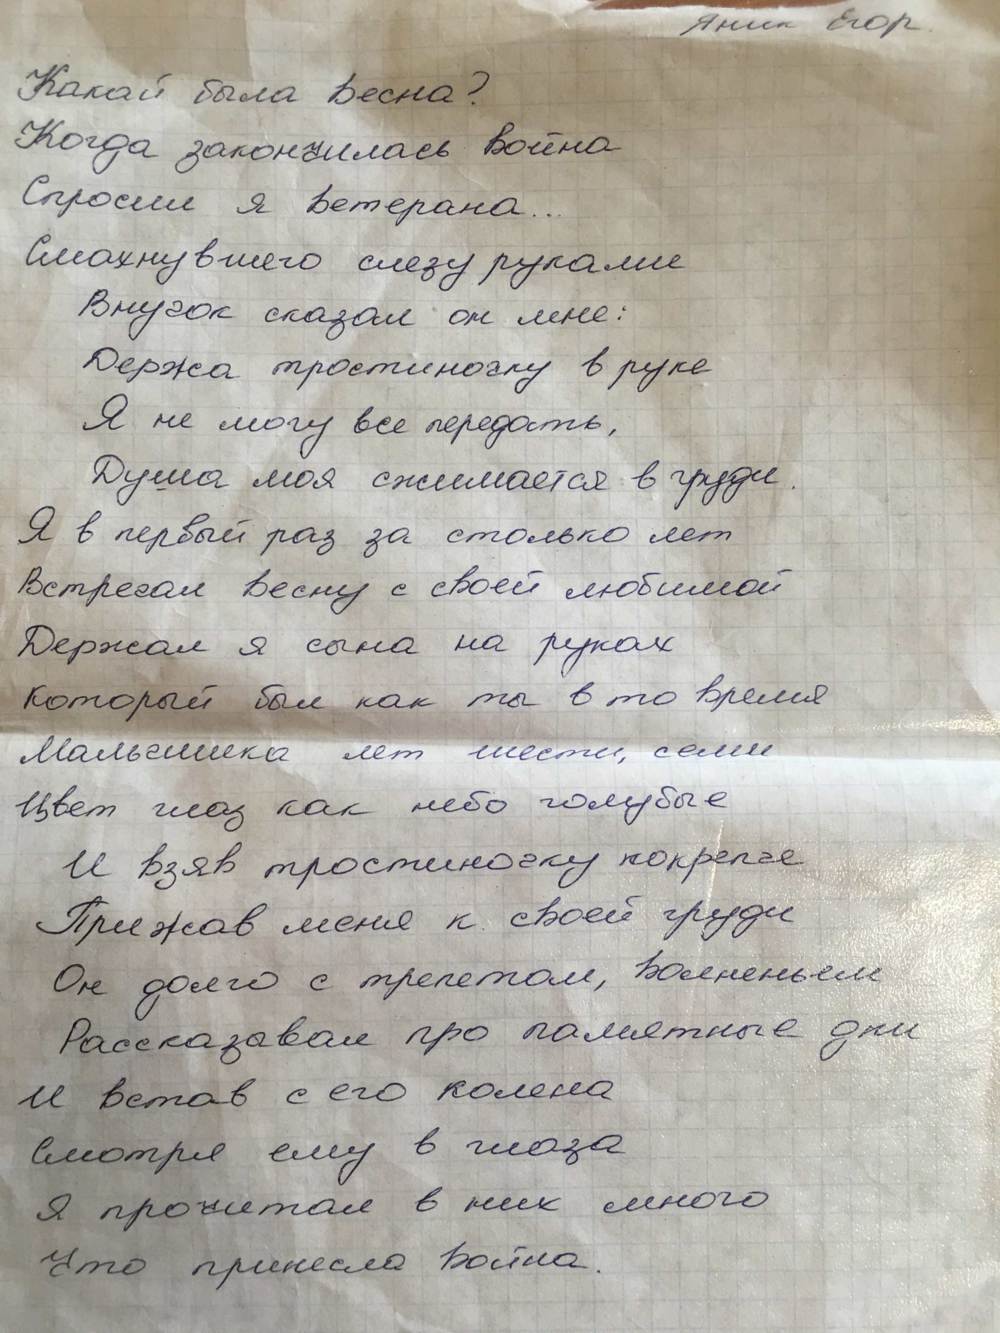 Яник Егор.
Какай была весна?
Когда закончилась война
Спросил я ветерана...
Смахнувшего слезу руками
Внучок сказал он мне:
Держа тростиночку в руке
Я не могу все передать,
Душа моя сжимается в груди.
Я в первый раз за столько лет
Встречал весну с своей любимой
Держал я сына на руках
который был как ты в то время
Мальчишка лет шести, семи
Цвет глаз как небо голубые
И взяв тростиночку покрепче
Прижав меня к своей груди
Он долго с трепетом, волненьем
Рассказывал про памятные дни
И встав с его колена
Смотря ему в глаза
Я прочитал в них много
Что принесла война.